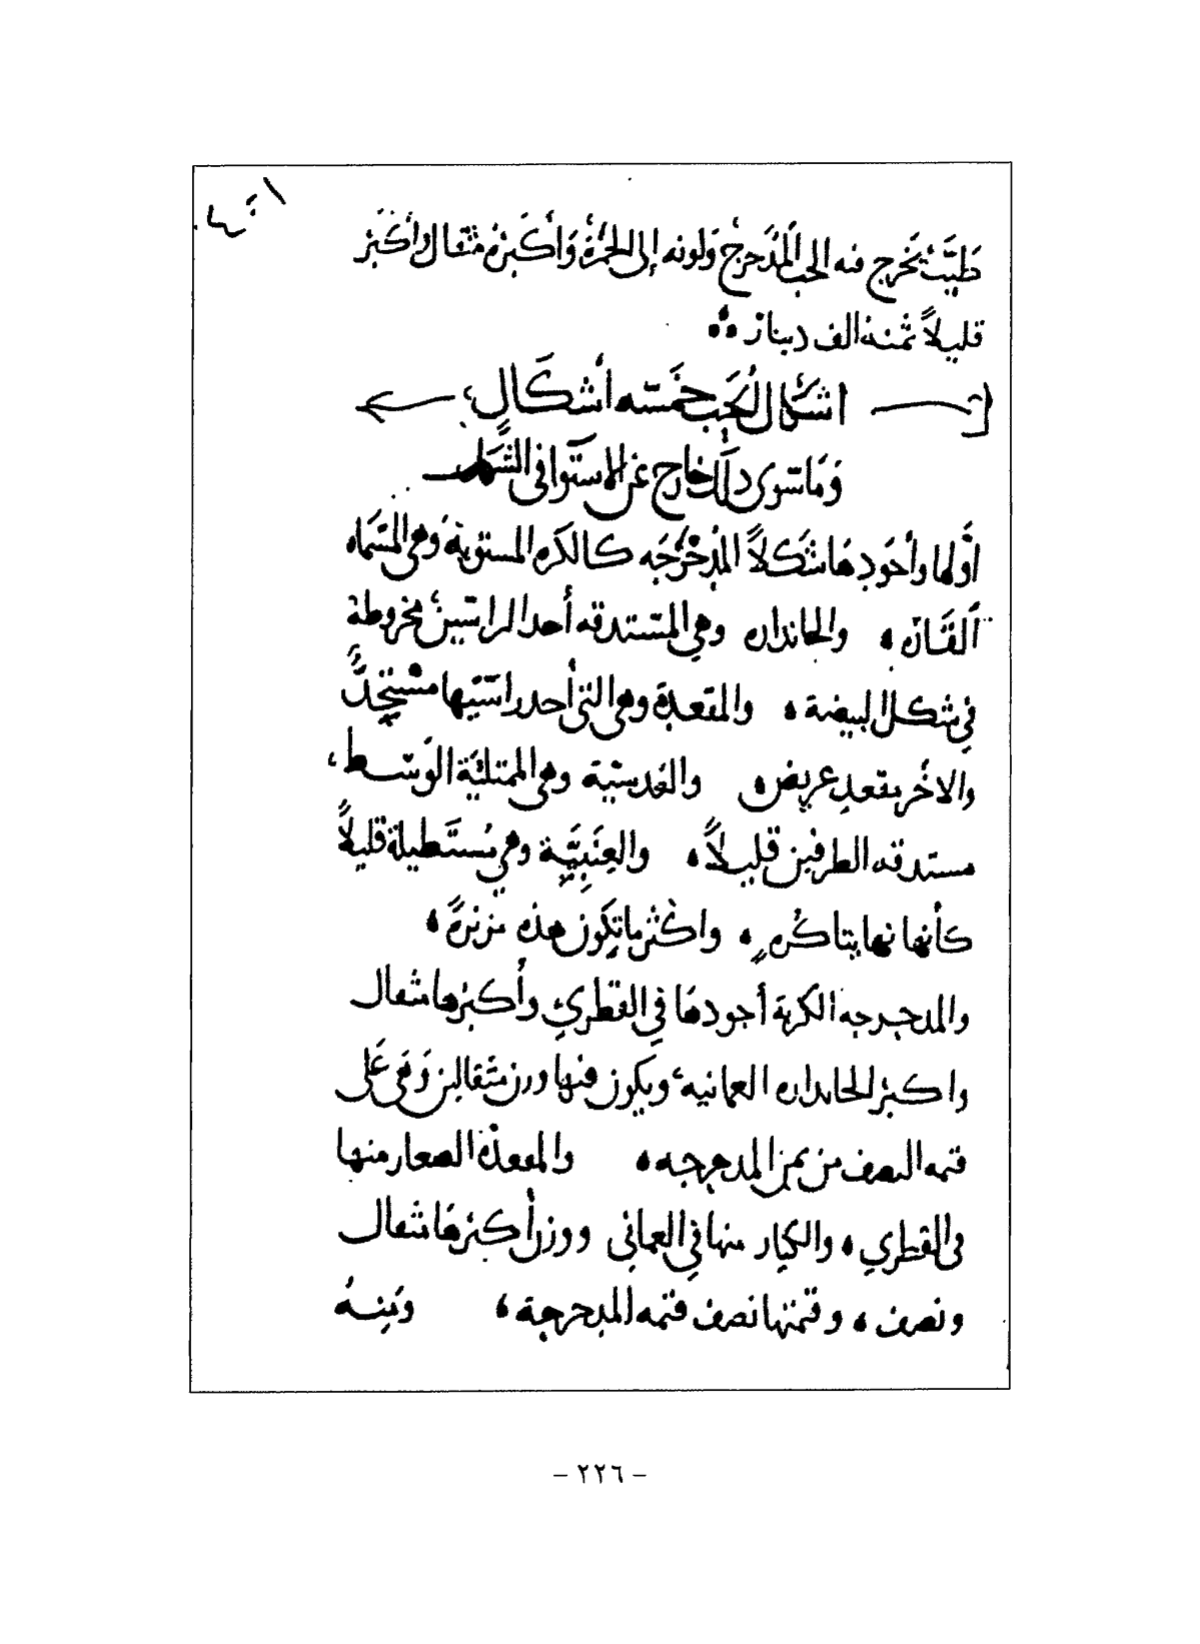 طيّب يخرج فيه الحب المُدَحرج ولونه إلى الحمرة وأكبره مثقال وأكبر
قليلاً ثمنه الف دينار
اشكال الحب خمسه أشكال
وما سوى ذلك خارج عن الاستوا في
أولها وأجودها شكلاً المدحرجه كالكره المستوية وهي المسماه
القار والخايدانه وهي المستدقه أحد الراسين مخروطة
في شكل البيضة والمقعدة وهي التي أحد راسيها
والاخر بقعد عريض والعدسية وهي الممتلية الوسط
مستدقه الطرفين قليلاً والعِنَبِيَّة وهي مُستَطيلة قليلاً
كأنها واكثر ما تكون هذه مزنرة
والمدحرجه الكرية أجودها في القطري وأكبرها مثقال
واكبر الخايدانه العمانيه ويكون فيها وزن مثقالين وهي على
قيمه النصف من ثمن المدحرجه والمقعدة الصغار منها
في القطري والكبار منها في العماني ووزن أكبرها مثقال
ونصف وقيمتها نصف قيمه المدحرجة
- ٢٢٦ -